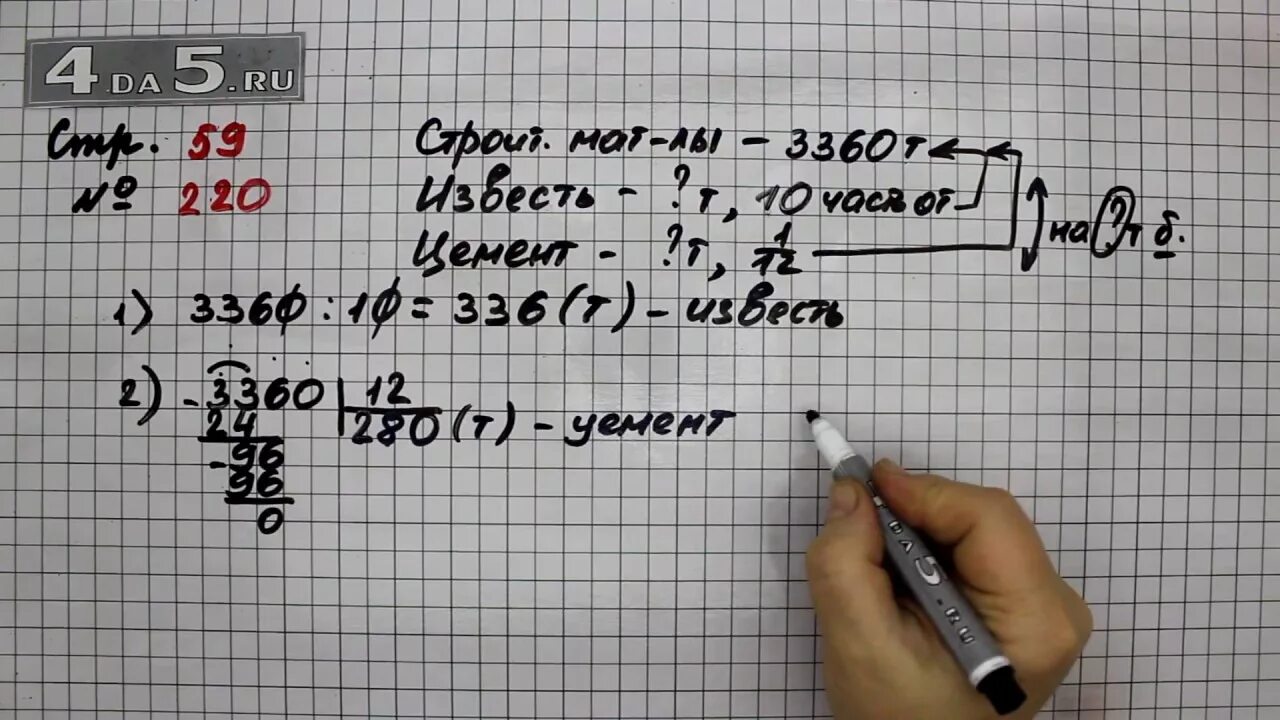 4DA5.RU
Стр. 59
№ 220
Строит. мат-лы – 3360 т
Известь – ? т, 10 часть от
Цемент – ? т, 1/12
на ? т б.
1) 3360 : 10 = 336 (т) – известь
2) - 3360 | 12
24 280 (т) – цемент
- 96
96
0
4DA5.RU